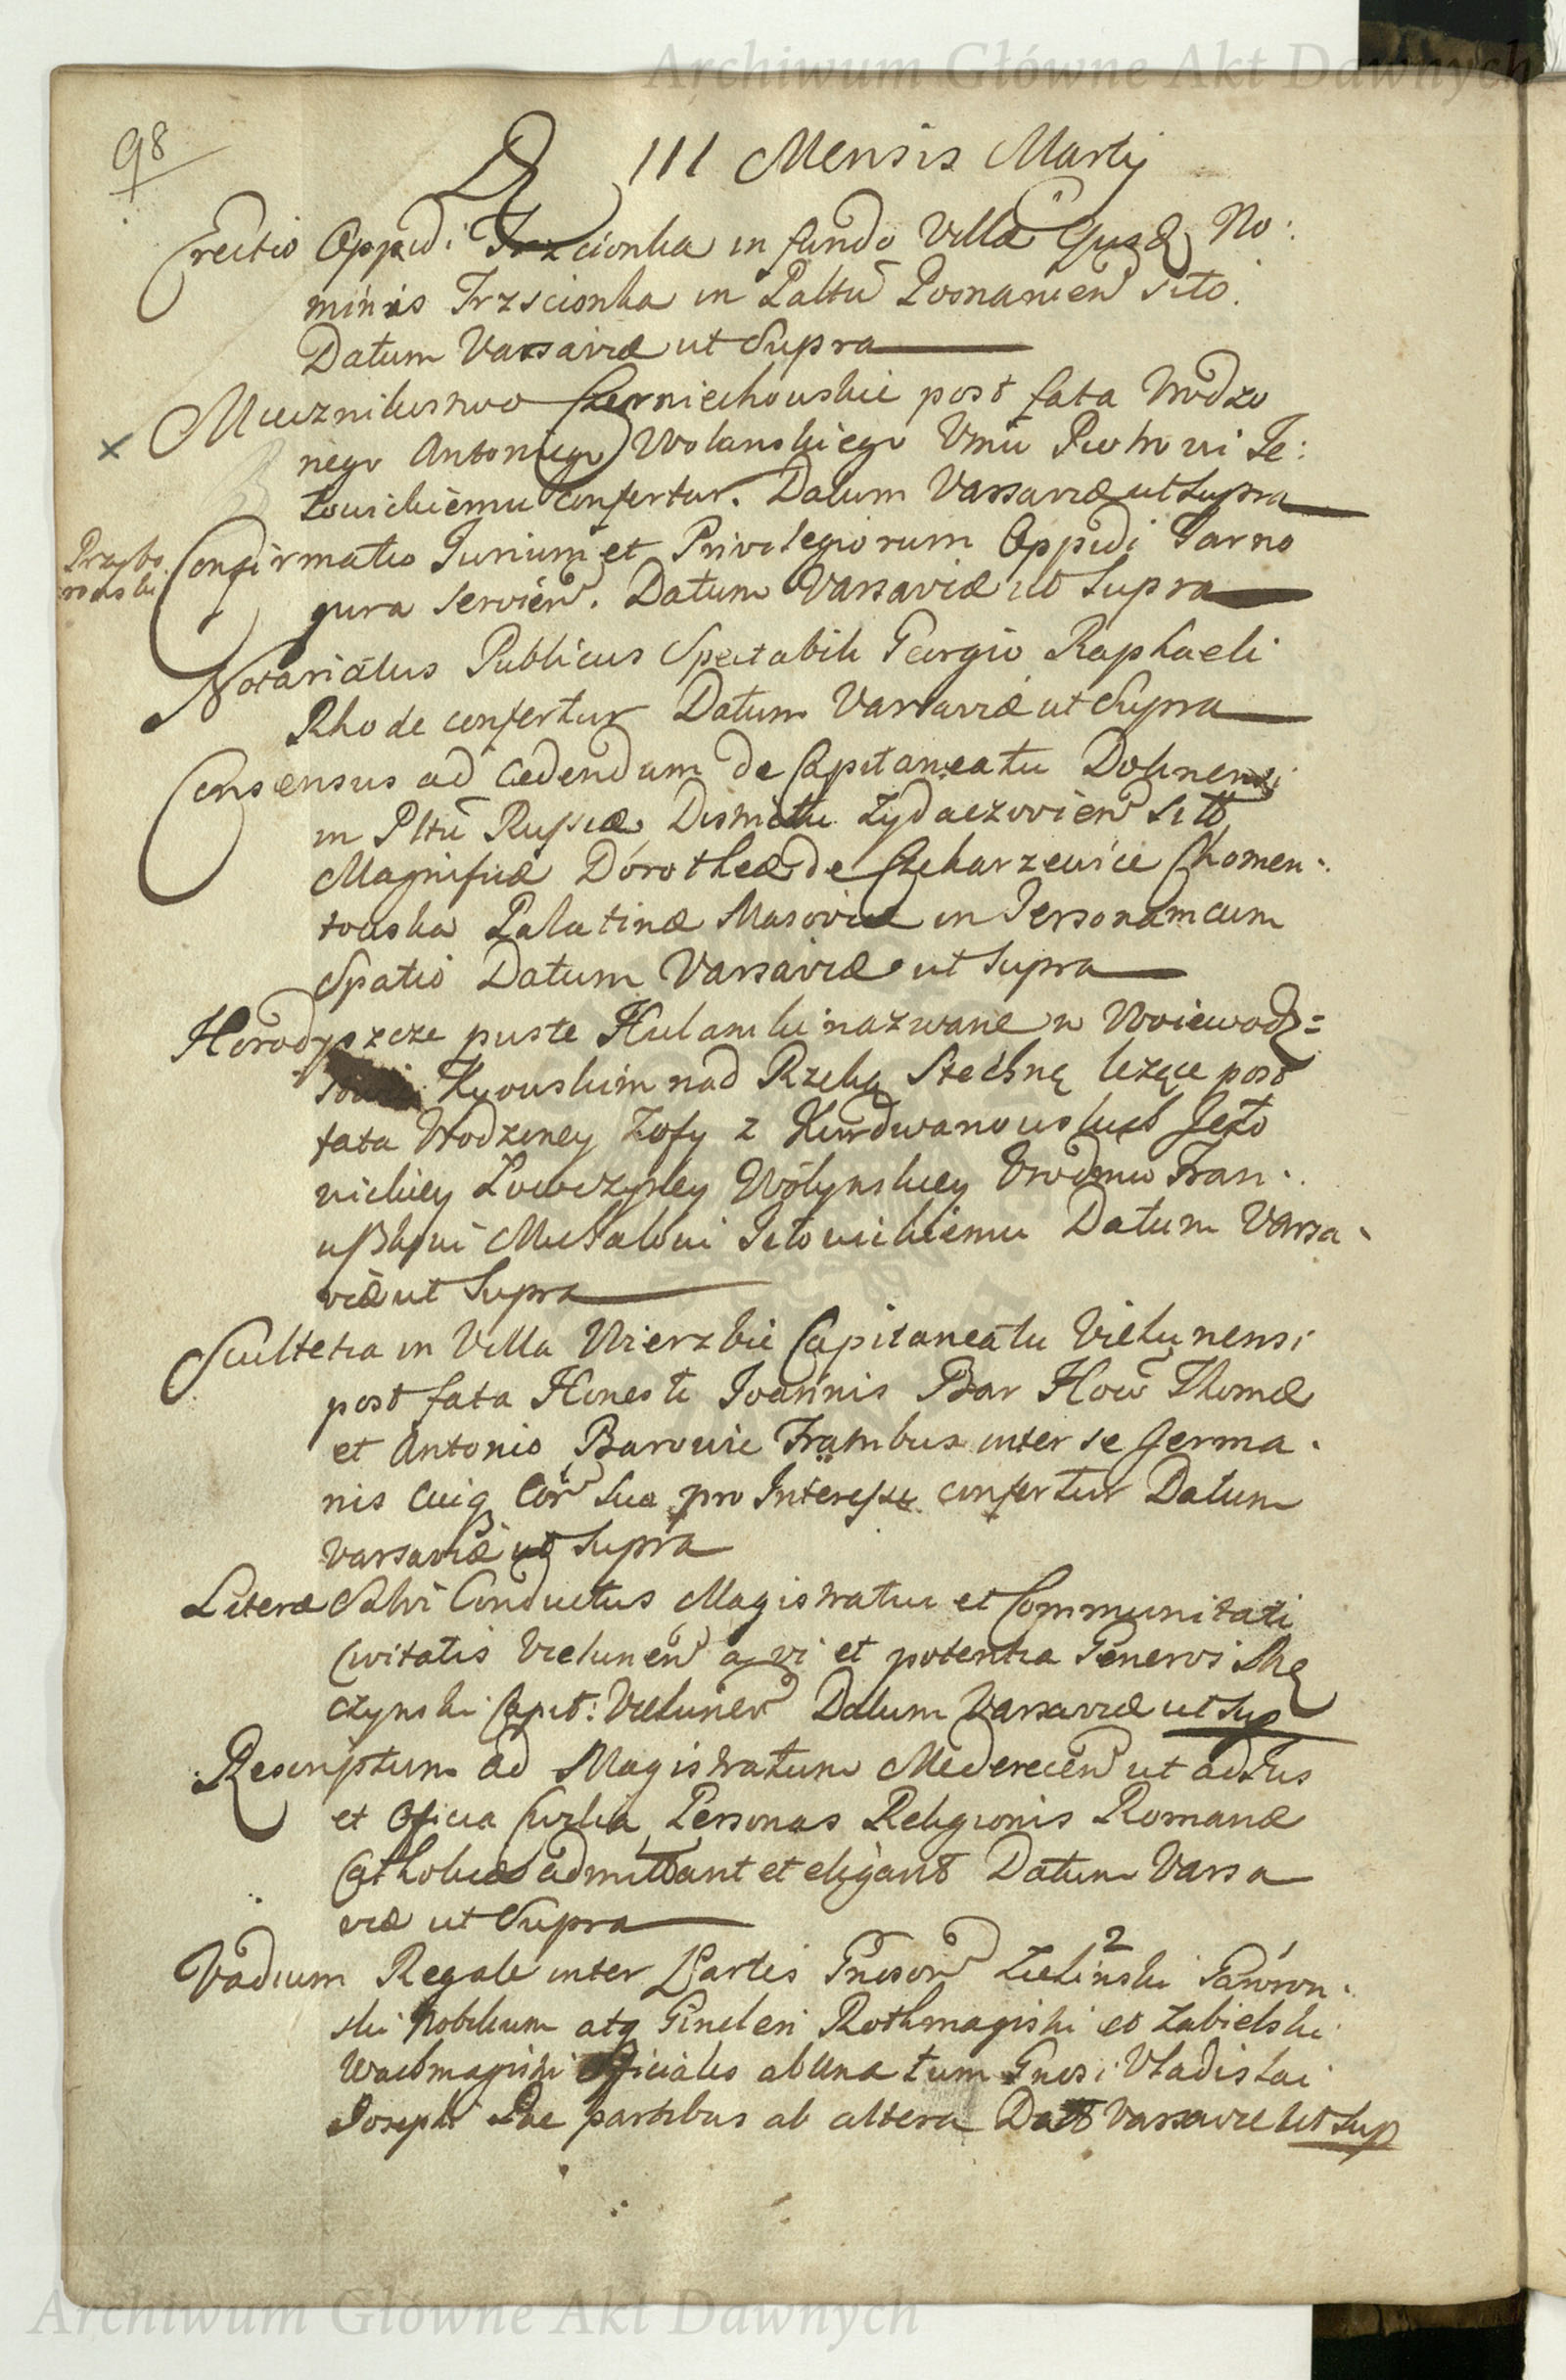 Archiwum Główne Akt Dawnych
98
D III Mensis Martij
Erectio Oppidi Trzcionka in fundo Villæ Ejusd No:
minis Trzscionka in Paltũ Posnanien sito.
Datum Varsaviæ ut Supra
Miecznikostwo Czerniechouskie post fata Urodzo
nego Antoniego Wolanskiego Vrnũ Piotrowi Je:
Łouickiemu confertur. Datum Varsaviæ ut Supra
Przybo
rouski
Confirmatio Jurium et Privilegiorum Oppidi Tarno
gura servien. Datum Varsaviæ ut Supra
Notariatus Publicus Spectabili Georgio Raphaeli
Rhode confertur Datum Varsaviæ ut Supra
Consensus ad cedendum de Capitaneatu Dolinensi
in Pltũ Russiæ, Districtu Zydaczovien sito
Magnificæ Dorotheæ de Chomen:
touska Palatinæ Masoviæ in Personam cum
Spatio Datum Varsaviæ ut Supra
Horodyszcze puste Kulanki nazwane w Woiewodz=
Kyouskim nad Rzeką lezące post
fata Urodzeney Zofy z Kurdwanouskich Jeło
vickiey Łowczyney Wołynskiey Urodmu Fran:
ciszkoui Michałoui Jełouickiemu Datum Varsa:
viæ ut Supra
Scultetia in Villa Wierzbie Capitaneatu Vielunensi
post fata Honesti Joannis Bar Thomæ
et Antonio Barouie Fratribus inter se Germa:
nis cuiq sua pro Interesse confertur Datum
Varsaviæ ut Supra
Literæ Salvi Conductus Magistratui et Communitati
Civitatis Vielunen a vi et potentia Generosi
czynski Capit: Vielunen Datum Varsaviæ ut Sup
Rescriptum ad Magistratum Mederecen ut ad Jus
et Officia Civilia Personas Religionis Romanæ
Catholicæ admittant et eligant Datum Varsa
viæ ut Supra
Vadium Regale inter Partes Gnosor Zielinski 2 Gawron:
ski Nobilium atq Rothmagistri et Zabielski
Wachmagistri Officiales ab una tum Gnosi Vladislai
Josephi partibus ab altera Datt Varsaviæ ut Sup
Archiwum Główne Akt Dawnych